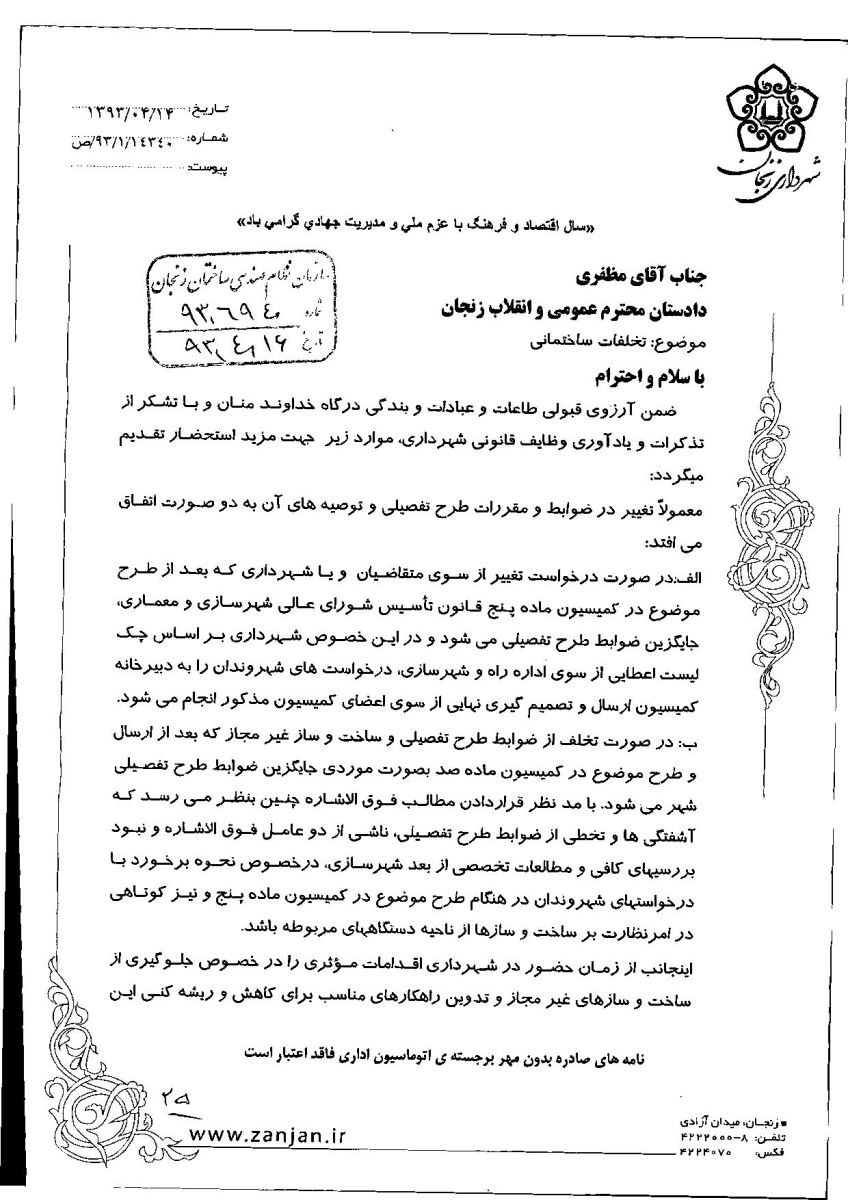 شهرداری زنجان
تاریخ: ۱۳۹۳/۰۴/۱۴
شماره: ۹۳/۱/۱٤۳٤۰/ص
پیوست:
«سال اقتصاد و فرهنگ با عزم ملي و مدیریت جهادي گرامي باد»
سازمان نظام مهندسی ساختمان زنجان
شماره ۹۳،۶۹۴۰
تاریخ ۹۳،۴،۱۶
جناب آقای مظفری
دادستان محترم عمومی و انقلاب زنجان
موضوع: تخلفات ساختمانی
با سلام و احترام
ضمن آرزوی قبولی طاعات و عبادات و بندگی درگاه خداوند منان و با تشکر از
تذکرات و یادآوری وظایف قانونی شهرداری، موارد زیر جهت مزید استحضار تقدیم
میگردد:
معمولاً تغییر در ضوابط و مقررات طرح تفصیلی و توصیه های آن به دو صورت اتفاق
می افتد:
الف:در صورت درخواست تغییر از سوی متقاضیان و یا شهرداری که بعد از طرح
موضوع در کمیسیون ماده پنج قانون تأسیس شورای عالی شهرسازی و معماری،
جایگزین ضوابط طرح تفصیلی می شود و در این خصوص شهرداری بر اساس چک
لیست اعطایی از سوی اداره راه و شهرسازی، درخواست های شهروندان را به دبیرخانه
کمیسیون ارسال و تصمیم گیری نهایی از سوی اعضای کمیسیون مذکور انجام می شود.
ب: در صورت تخلف از ضوابط طرح تفصیلی و ساخت و ساز غیر مجاز که بعد از ارسال
و طرح موضوع در کمیسیون ماده صد بصورت موردی جایگزین ضوابط طرح تفصیلی
شهر می شود. با مد نظر قراردادن مطالب فوق الاشاره چنین بنظر می رسد که
آشفتگی ها و تخطی از ضوابط طرح تفصیلی، ناشی از دو عامل فوق الاشاره و نبود
بررسیهای کافی و مطالعات تخصصی از بعد شهرسازی، درخصوص نحوه برخورد با
درخواستهای شهروندان در هنگام طرح موضوع در کمیسیون ماده پنج و نیز کوتاهی
در امرنظارت بر ساخت و سازها از ناحیه دستگاههای مربوطه باشد.
اینجانب از زمان حضور در شهرداری اقدامات مؤثری را در خصوص جلوگیری از
ساخت و سازهای غیر مجاز و تدوین راهکارهای مناسب برای کاهش و ریشه کنی این
نامه های صادره بدون مهر برجسته ی اتوماسیون اداری فاقد اعتبار است
۲۵
www.zanjan.ir
زنجان، میدان آزادی
تلفن: ۸-۴۲۲۲۰۰۰
فکس: ۴۲۲۴۰۷۰